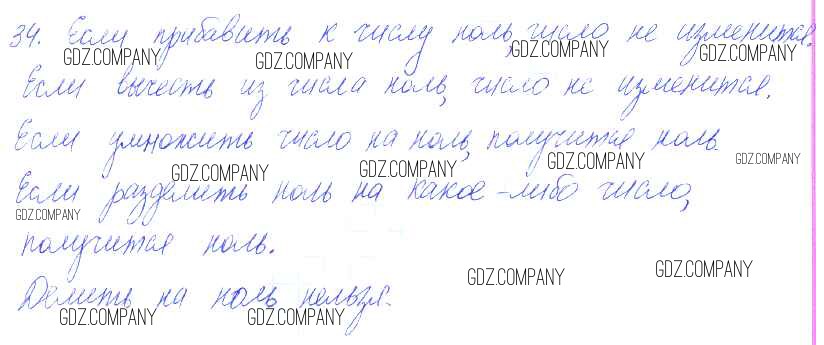 34. Если прибавить к числу ноль, число не изменится.
GDZ.COMPANY GDZ.COMPANY GDZ.COMPANY GDZ.COMPANY
Если вычесть из числа ноль, число не изменится.
Если умножить число на ноль, получится ноль.
GDZ.COMPANY GDZ.COMPANY GDZ.COMPANY GDZ.COMPANY
Если разделить ноль на какое-либо число,
GDZ.COMPANY
получится ноль.
GDZ.COMPANY GDZ.COMPANY
Делить на ноль нельзя.
GDZ.COMPANY GDZ.COMPANY